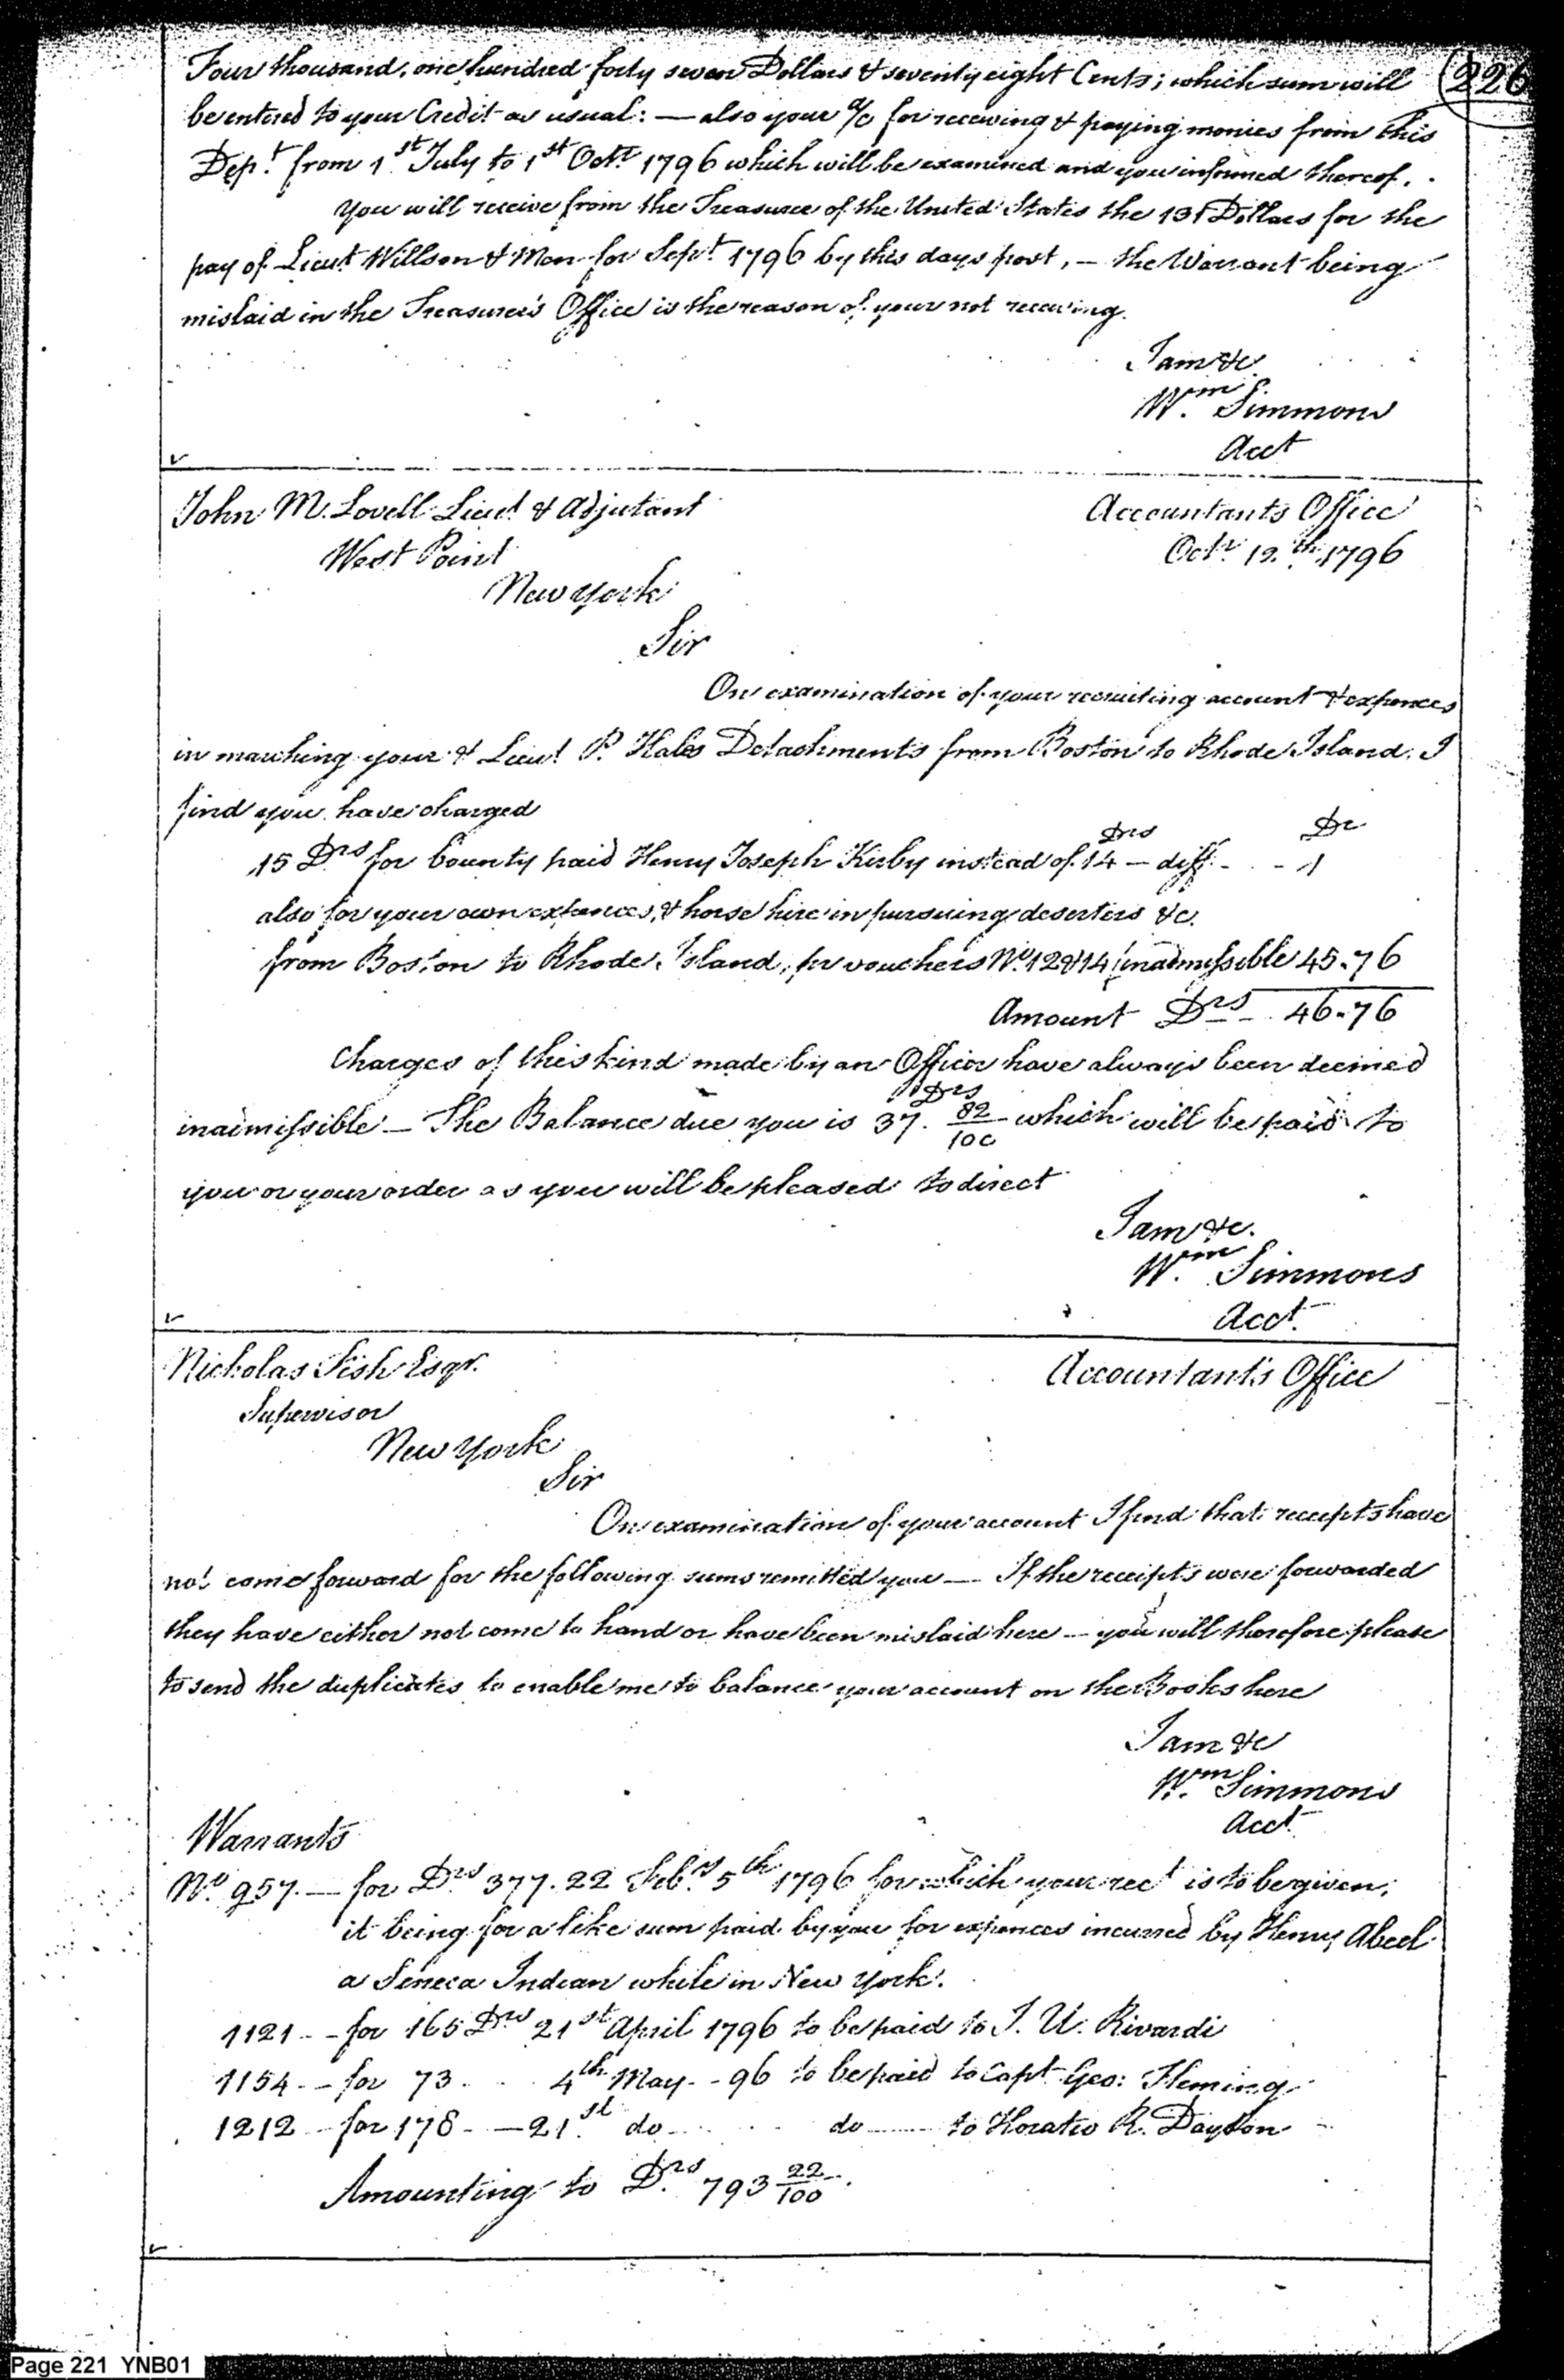 226
Four thousand, one hundred forty seven Dollars & seventy eight Cents; which sum will
be entered to your Credit as usual: — also your a/c for receiving & paying monies from this
Dept. from 1st July to 1st Octr 1796 which will be examined and you informed thereof.
You will receive from the Treasurer of the United States the 131 Dollars for the
pay of Lieut Willson & Men for Sept. 1796 by this days post, — the Warrant being
mislaid in the Treasurer's Office is the reason of your not receiving.
I am &c
Wm. Simmons
Acct
John M. Lovell Lieut & Adjutant
Accountants Office
West Point
Octr. 12.th 1796
New York
Sir
On examination of your recruiting account & expences
in marching your & Lieut P. Hales Detachments from Boston to Rhode Island. I
find you have charged
Drs Dr
15 Drs for bounty paid Henry Joseph Kirby instead of 14 — diff - - 1
also for your own expences, & horse hire in pursuing deserters &c.
from Boston to Rhode Island, pr vouchers No. 12 & 14 inadmissible 45.76
Amount Drs - 46.76
Charges of this kind made by an Officer have always been deemed
inadmissible — The Balance due you is 37. 82/100 Drs which will be paid to
you or your order as you will be pleased to direct
I am &c.
Wm. Simmons
Acct.
Nicholas Fish Esqr.
Accountant's Office
Supervisor
New York
Sir
On examination of your account I find that receipts have
not come forward for the following sums remitted you — If the receipts were forwarded
they have either not come to hand or have been mislaid here — you will therefore please
to send the duplicates to enable me to balance your account on the Books here
I am &c
Wm. Simmons
Acct.
Warrants
No. 957. — for Drs 377.22 Feby 5th 1796 for which your rect is to be given;
it being for a like sum paid by you for expences incurred by Henry Abeel
a Seneca Indian while in New York.
1121 - - for 165 Drs 21st April 1796 to be paid to J. U. Rivardi
1154 - - for 73 - - 4th May - - 96 to be paid to Capt Geo: Fleming
1212 - for 178 - — 21st. do - - - do - - - to Horatio R. Dayton
Amounting to Drs. 793 22/100.
Page 221 YNB01